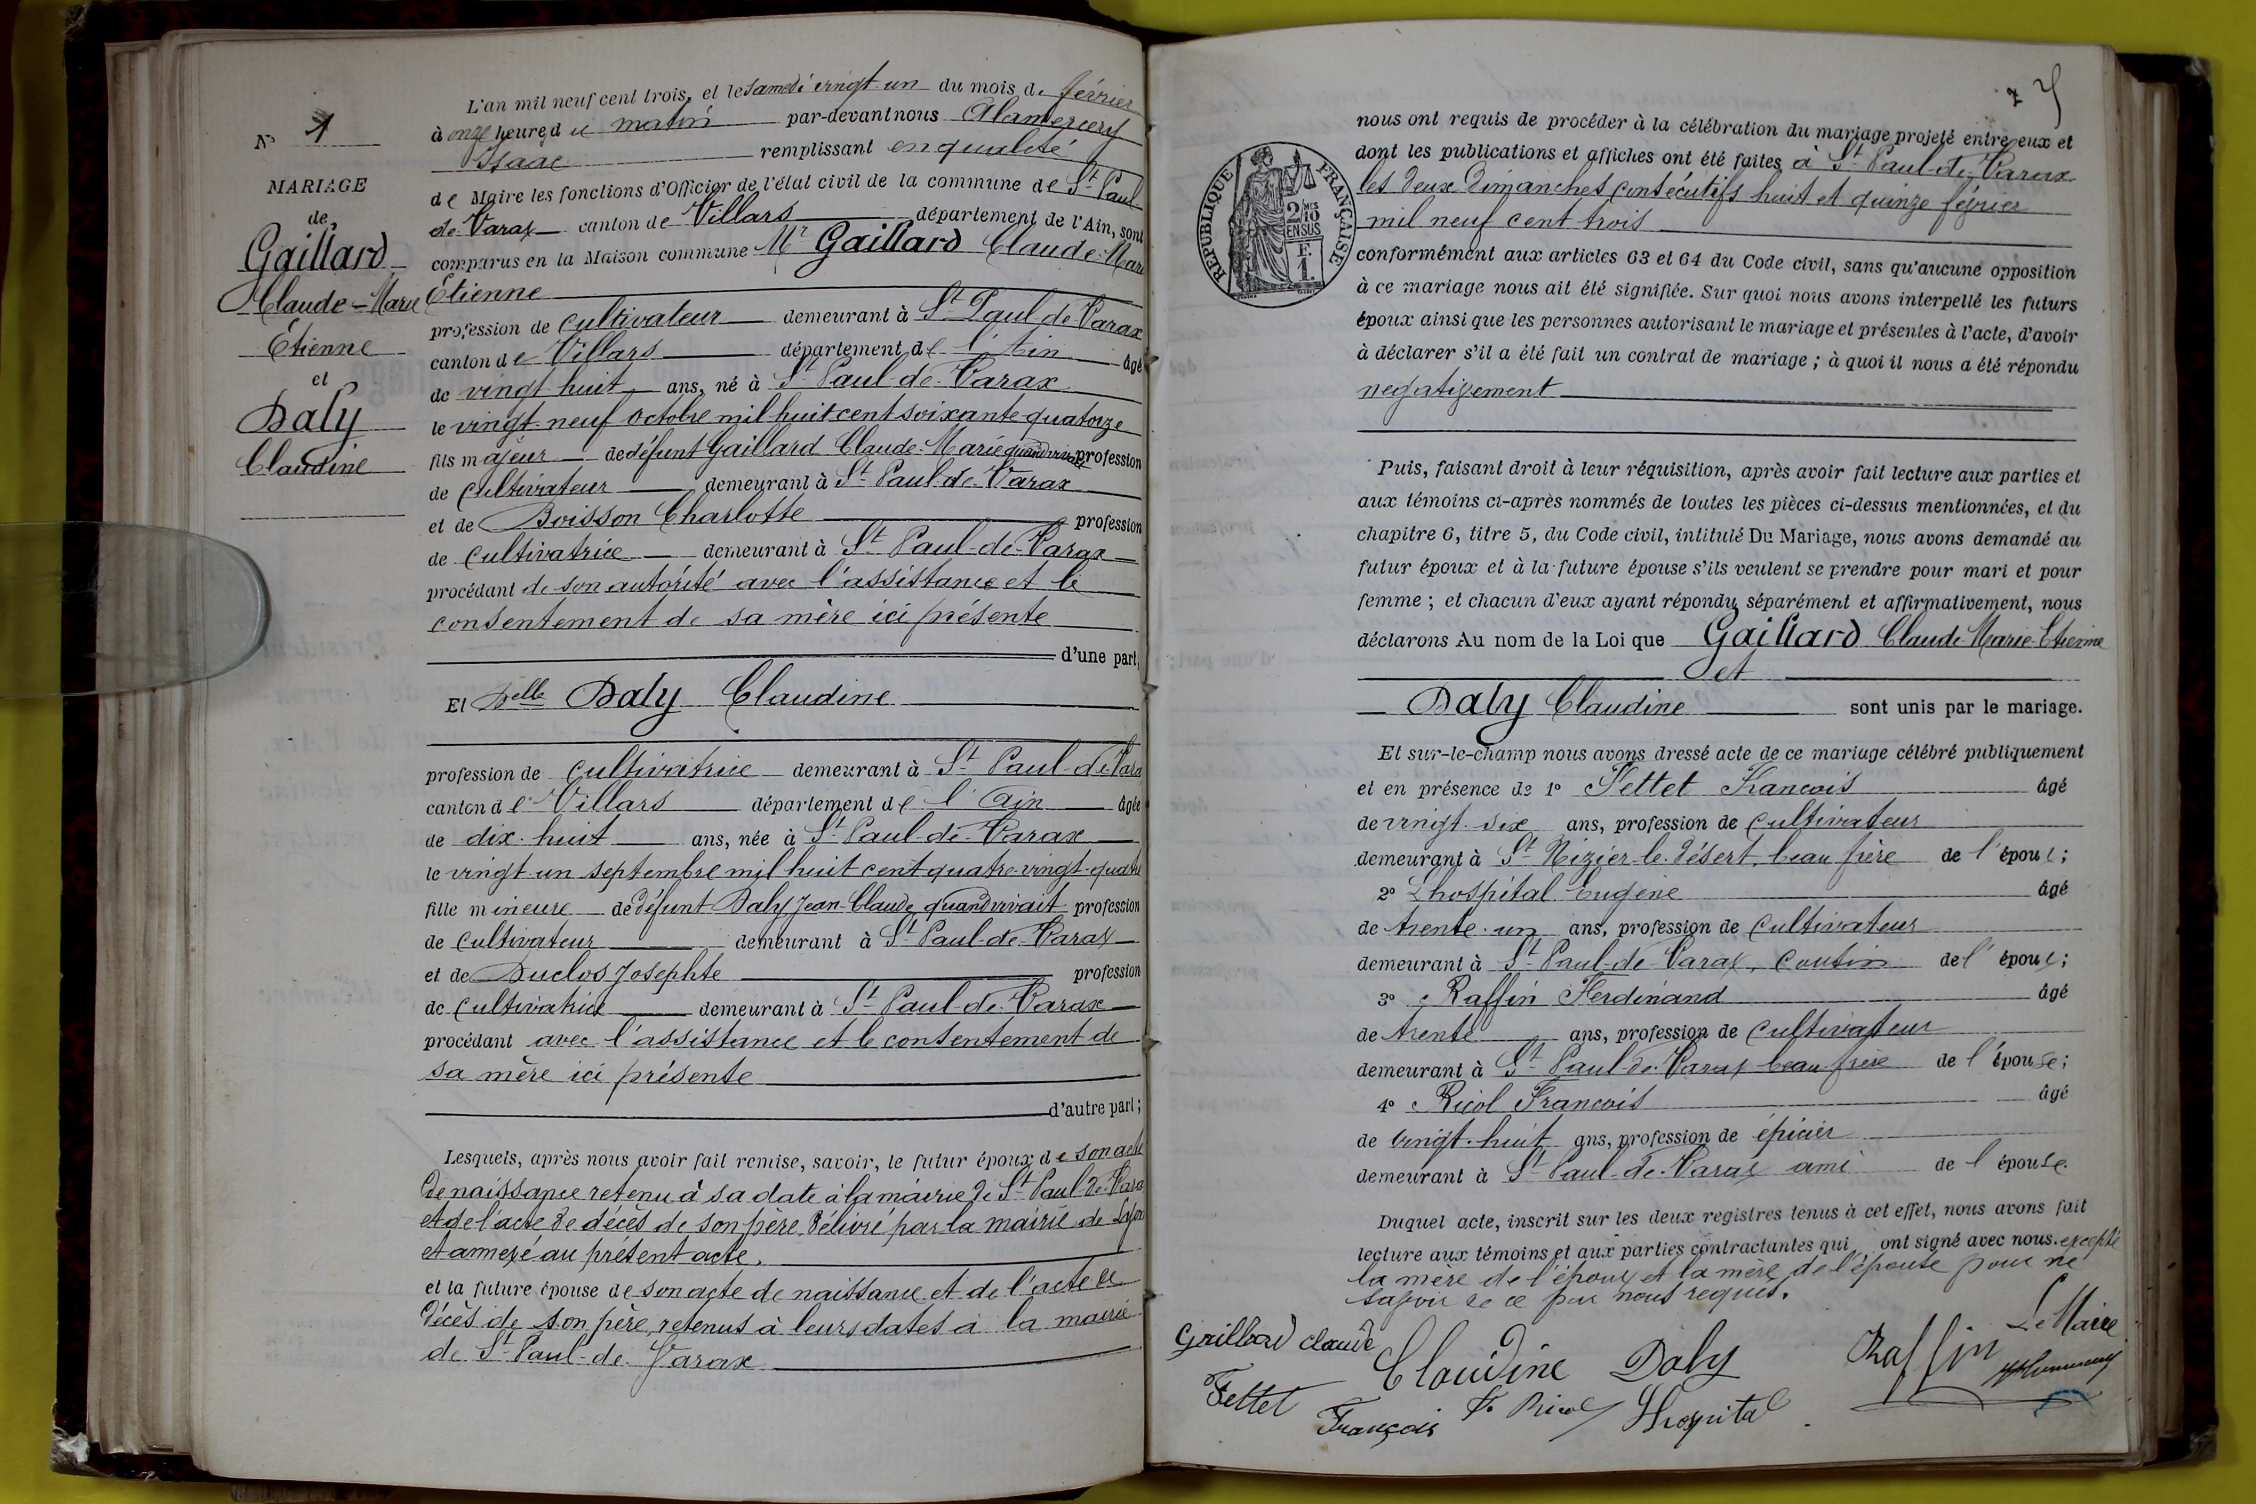 N° 1
MARIAGE
de
Gaillard
Claude-Marie
Etienne
et
Daly
Claudine
L'an mil neuf cent trois, et le samedi vingt-un du mois de février
à onze heures du matin par-devant nous
Isaac remplissant en qualité
de Maire les fonctions d'Officier de l'état civil de la commune de St Paul-
de-Varax canton de Villars département de l'Ain, sont
comparus en la Maison commune Mr Gaillard Claude-Marie
Etienne
profession de cultivateur demeurant à St Paul de Varax
canton de Villars département de l'Ain âgé
de vingt huit ans, né à St Paul de Varax
le vingt-neuf Octobre mil huit cent soixante-quatorze
fils majeur de défunt Gaillard Claude-Marie quand vivait profession
de cultivateur demeurant à St Paul-de-Varax
et de Boisson Charlotte profession
de cultivatrice demeurant à St Paul-de-Varax
procédant de son autorité avec l'assistance et le
consentement de sa mère ici présente
d'une part;
Et Delle Daly Claudine
profession de cultivatrice demeurant à St Paul-de-Vara
canton de Villars département de l'Ain âgée
de dix-huit ans, née à St Paul-de-Varax
le vingt-un septembre mil huit cent quatre-vingt-quatre
fille mineure de défunt Daly Jean-Claude quand vivait profession
de cultivateur demeurant à St Paul-de-Varax
et de Duclos Josephte profession
de cultivatrice demeurant à St Paul-de-Varax
procédant avec l'assistance et le consentement de
sa mère ici présente
d'autre part;
Lesquels, après nous avoir fait remise, savoir, le futur époux de son acte
de naissance retenu à sa date à la mairie de St Paul-de-Vara
et de l'acte de décès de son père délivré par la mairie de Lyon
et annexé au présent acte.
et la future épouse de son acte de naissance et de l'acte de
décès de son père, retenus à leurs dates à la mairie
de St Paul-de-Varax
REPUBLIQUE FRANÇAISE
2/10MES
EN SUS
F.
1.
nous ont requis de procéder à la célébration du mariage projeté entre eux et
dont les publications et affiches ont été faites à St Paul-de-Varax
les deux Dimanches consécutifs huit et quinze février
mil neuf cent trois
conformément aux articles 63 et 64 du Code civil, sans qu'aucune opposition
à ce mariage nous ait été signifiée. Sur quoi nous avons interpellé les futurs
époux ainsi que les personnes autorisant le mariage et présentes à l'acte, d'avoir
à déclarer s'il a été fait un contrat de mariage ; à quoi il nous a été répondu
negativement
Puis, faisant droit à leur réquisition, après avoir fait lecture aux parties et
aux témoins ci-après nommés de toutes les pièces ci-dessus mentionnées, et du
chapitre 6, titre 5, du Code civil, intitulé Du Mariage, nous avons demandé au
futur époux et à la future épouse s'ils veulent se prendre pour mari et pour
femme ; et chacun d'eux ayant répondu séparément et affirmativement, nous
déclarons Au nom de la Loi que Gaillard Claude-Marie-Etienne
et
Daly Claudine sont unis par le mariage.
Et sur-le-champ nous avons dressé acte de ce mariage célébré publiquement
et en présence de 1° Fettet Francois âgé
de vingt-six ans, profession de cultivateur
demeurant à St Nizier-le-Désert, beau frère de l'époux;
2° Lhospital Eugène âgé
de trente-un ans, profession de cultivateur
demeurant à St Paul-de-Varax, cousin de l'époux;
3° Raffin Ferdinand âgé
de trente ans, profession de cultivateur
demeurant à St Paul-de-Varax beau frère de l'épouse;
4° Ricol Francois âgé
de vingt-huit ans, profession de épicier
demeurant à St Paul-de-Varax ami de l'épouse.
Duquel acte, inscrit sur les deux registres tenus à cet effet, nous avons fait
lecture aux témoins et aux parties contractantes qui ont signé avec nous. excepté
la mère de l'époux et la mère de l'épouse pour ne
savoir de ce par nous requis.
Le Maire
Gaillard Claude
Claudine Daly
Raffin
Fettet
François
F. Ricol
Lhospital